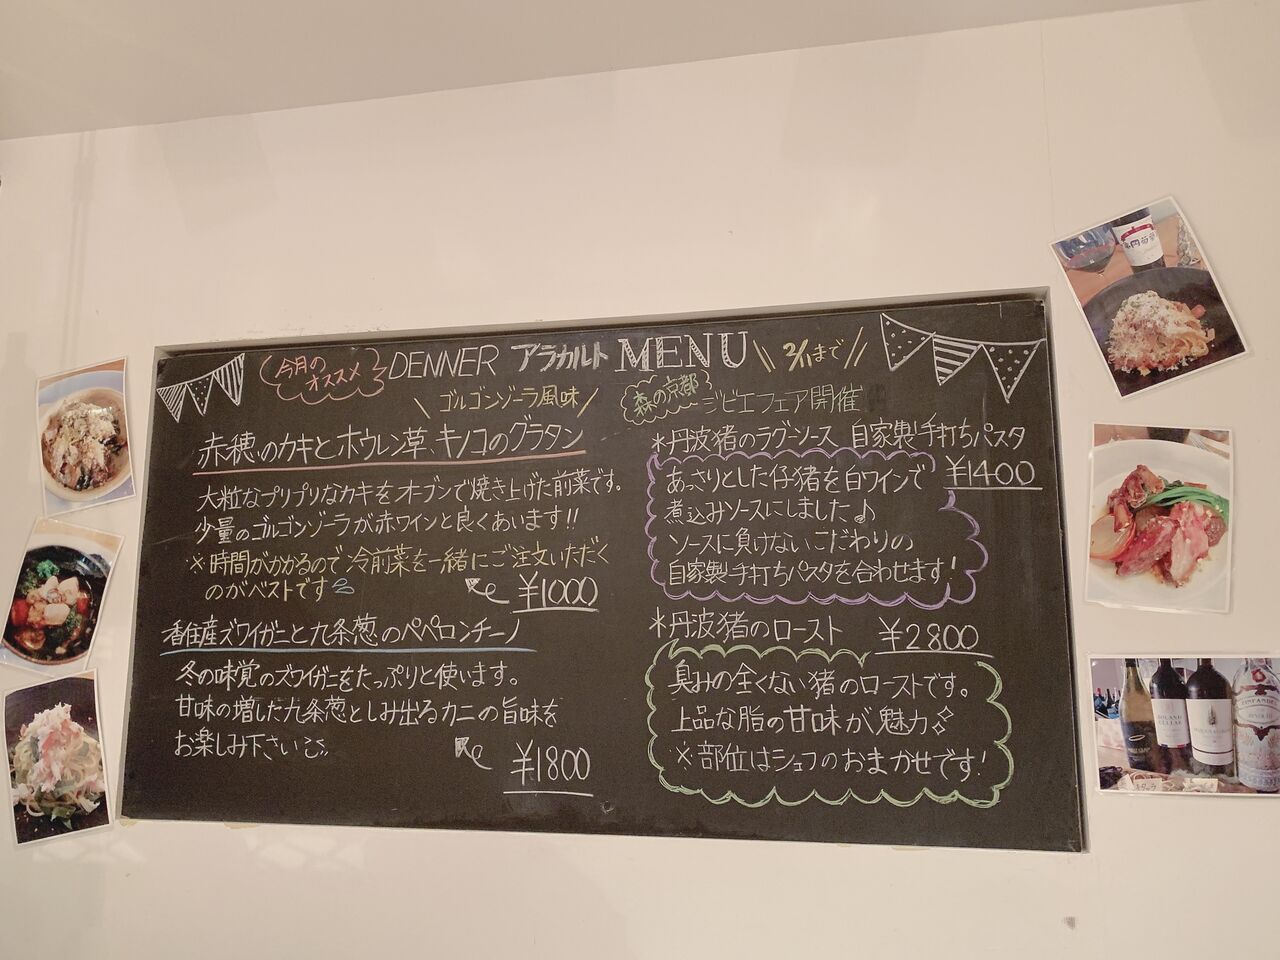 今月の
オススメ
DENNER アラカルト MENU
2/1まで
ゴルゴンゾーラ風味
赤穂のカキとホウレン草、キノコのグラタン
大粒なプリプリなカキをオーブンで焼き上げた前菜です。
少量のゴルゴンゾーラが赤ワインと良くあいます!!
※時間がかかるので冷前菜を一緒にご注文いただく
のがベストです
¥1000
香住産ズワイガニと九条葱のペペロンチーノ
冬の味覚のズワイガニをたっぷりと使います。
甘味の増した九条葱としみ出るカニの旨味を
お楽しみ下さい
¥1800
森の京都
ジビエフェア開催
*丹波猪のラグーソース 自家製手打ちパスタ
¥1400
あっさりとした仔猪を白ワインで
煮込みソースにしました♪
ソースに負けないこだわりの
自家製手打ちパスタを合わせます!
*丹波猪のロースト ¥2800
臭みの全くない猪のローストです。
上品な脂の甘味が魅力
※部位はシェフのおまかせです!
ZINFANDEL